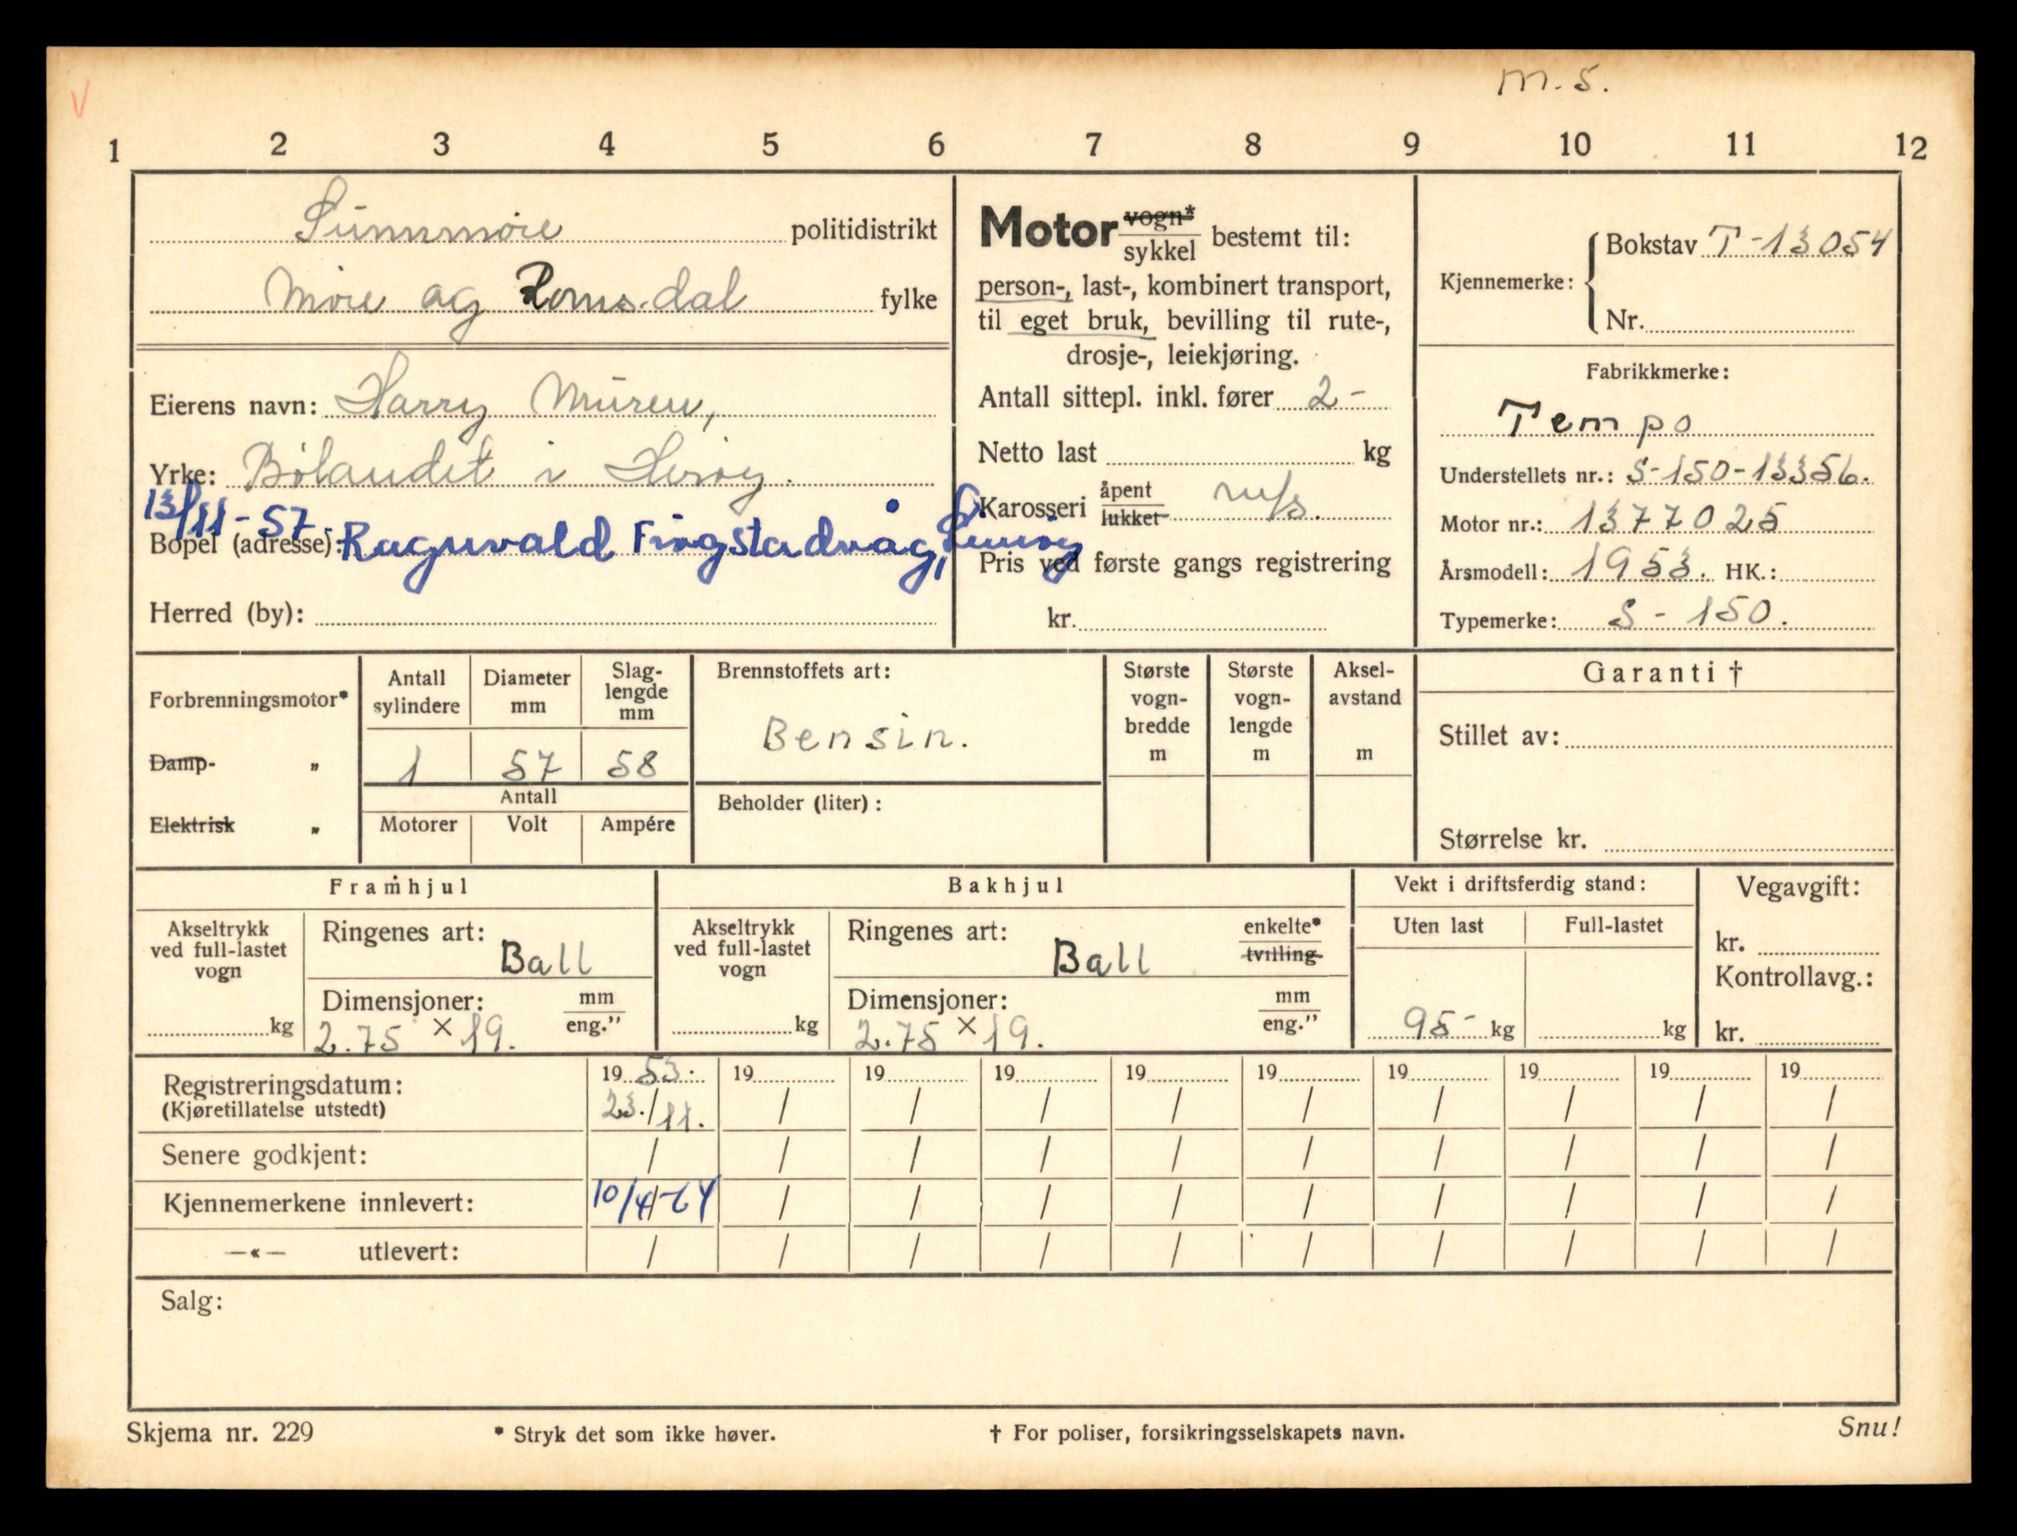 V
m.s.
1 2 3 4 5 6 7 8 9 10 11 12
Sunnmøre politidistrikt
Møre og Romsdal fylke
Eierens navn: Harry Muren,
Yrke: Bølandet i Herøy.
13/11-57.
Bopel (adresse): Ragnvald Fingstadvåg,
Herred (by):
Motor vogn*
sykkel bestemt til:
person-, last-, kombinert transport,
til eget bruk, bevilling til rute-,
drosje-, leiekjøring.
Antall sittepl. inkl. fører 2-
Netto last kg
Karosseri åpent
lukket m/s.
Pris ved første gangs registrering
kr.
Kjennemerke: Bokstav T-13054
Nr.
Fabrikkmerke:
Tempo
Understellets nr.: S-150-13356.
Motor nr.: 1377025
Årsmodell: 1953. HK.:
Typemerke: S-150.
Forbrenningsmotor*
Damp- „
Elektrisk „
Antall sylindere
Diameter mm
Slag-
lengde
mm
1 57 58
Antall
Motorer Volt Ampére
Brennstoffets art:
Bensin.
Beholder (liter):
Største
vogn-
bredde
m
Største
vogn-
lengde
m
Aksel-
avstand
m
Garanti †
Stillet av:
Størrelse kr.
Framhjul
Akseltrykk
ved full-lastet
vogn
kg
Ringenes art:
Ball
Dimensjoner: mm
eng."
2.75 × 19.
Bakhjul
Akseltrykk
ved full-lastet
vogn
kg
Ringenes art: enkelte*
tvilling
Ball
Dimensjoner: mm
eng."
2.75 × 19.
Vekt i driftsferdig stand:
Uten last Full-lastet
95- kg kg
Vegavgift:
kr.
Kontrollavg.:
kr.
Registreringsdatum: 19 53. 19 19 19 19 19 19 19 19 19
(Kjøretillatelse utstedt) 23./11. / / / / / / / / /
Senere godkjent: / / / / / / / / / /
Kjennemerkene innlevert: 10/4-64 / / / / / / / / /
—«— utlevert: / / / / / / / / / /
Salg:
Skjema nr. 229 * Stryk det som ikke høver. † For poliser, forsikringsselskapets navn. Snu!